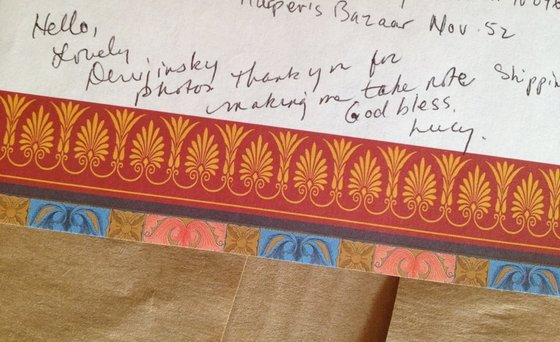 Harper's Bazaar Nov. 52
Hello,
Lovely
Derujinsky thank you for Shippin
photos making me take note
God bless.
Lucy.